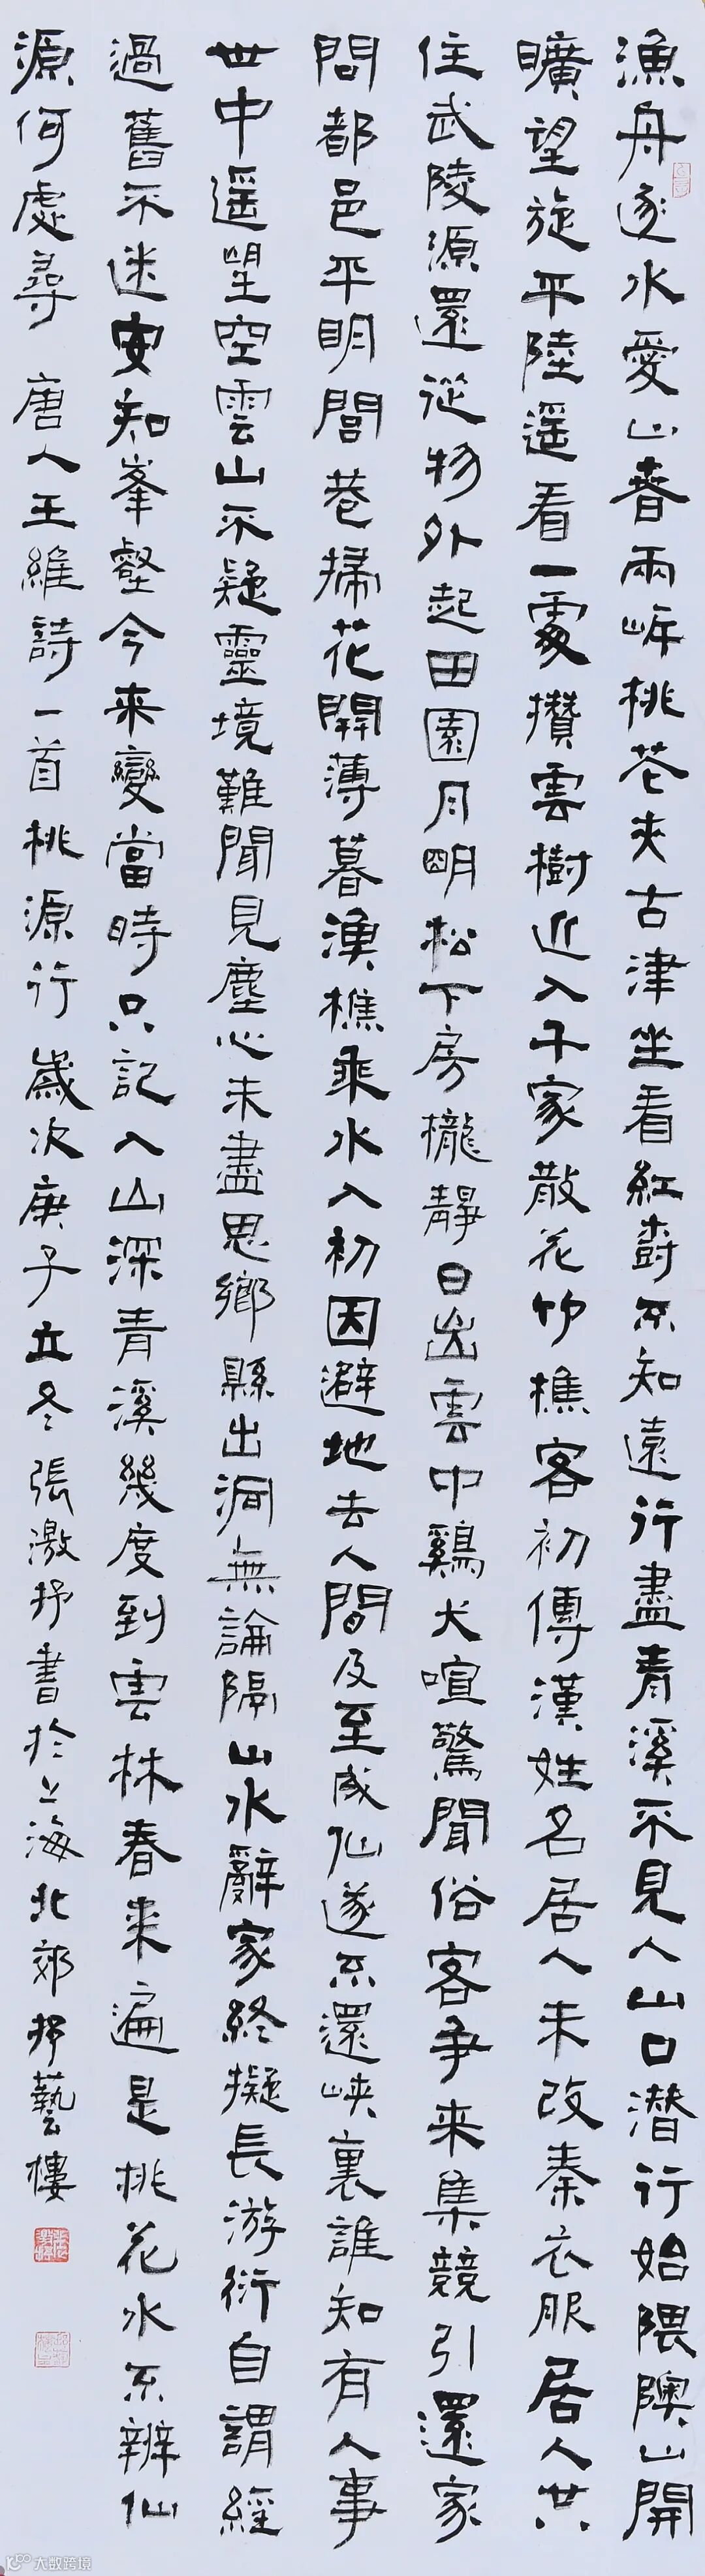 漁舟逐水愛山春兩岸桃花夾古津坐看紅樹不知遠行盡青溪不見人山口潛行始隈隩山開
曠望旋平陸遥看一處攢雲樹近入千家散花竹樵客初傳漢姓名居人未改秦衣服居人共
住武陵源還從物外起田園月明松下房櫳靜日出雲中鷄犬喧驚聞俗客争来集競引還家
問都邑平明閭巷掃花開薄暮漁樵乘水入初因避地去人間及至成仙遂不還峽裏誰知有人事
世中遥望空雲山不疑靈境難聞見塵心未盡思鄉縣出洞無論隔山水辭家終擬長游衍自謂經
過舊不迷安知峯壑今来變當時只記入山深青溪幾度到雲林春来遍是桃花水不辨仙
源何處尋 唐人王維詩一首桃源行 歲次庚子立冬 張激抒書於上海北郊抒藝樓
大数跨境